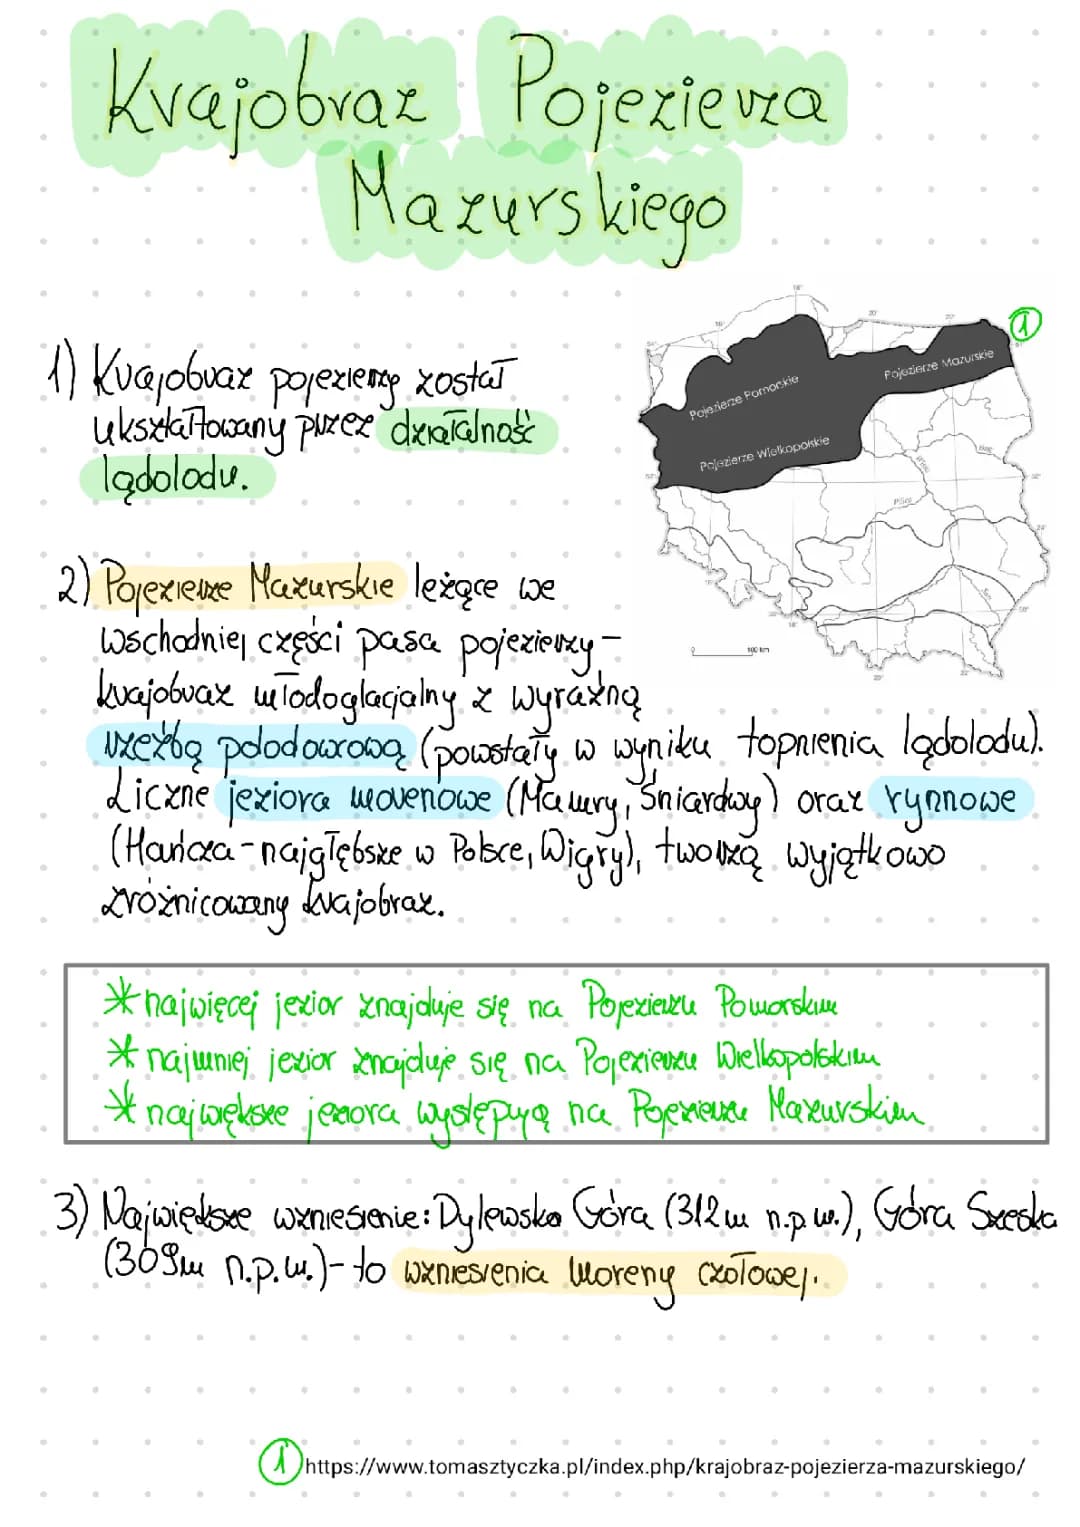 Krajobraz Pojezierza
Mazurskiego
1) Krajobraz pojezierzy został
ukształtowany przez działalność
lądolodu.
18°
16°
20°
22°
54°
1
Pojezierze Pomorskie
Pojezierze Mazurskie
Pojezierze Wielkopolskie
Bug
Wisła
52°
52°
Pilica
24°
San
50°
16°
18°
0
100 km
20°
22°
2) Pojezierze Mazurskie leżące we
wschodniej części pasa pojezierzy -
krajobraz młodoglacjalny z wyraźną
rzeźbą polodowcową (powstały w wyniku topnienia lądolodu).
Liczne jeziora morenowe (Mamry, Śniardwy) oraz rynnowe
(Hańcza - najgłębsze w Polsce, Wigry), tworzą wyjątkowo
zróżnicowany krajobraz.
* najwięcej jezior znajduje się na Pojezierzu Pomorskim
* najmniej jezior znajduje się na Pojezierzu Wielkopolskim
* największe jeziora występują na Pojezierzu Mazurskim
3) Największe wzniesienie: Dylewska Góra (312m n.p.m.), Góra Szeska
(309m n.p.m.) - to wzniesienia moreny czołowej.
1 https://www.tomasztyczka.pl/index.php/krajobraz-pojezierza-mazurskiego/